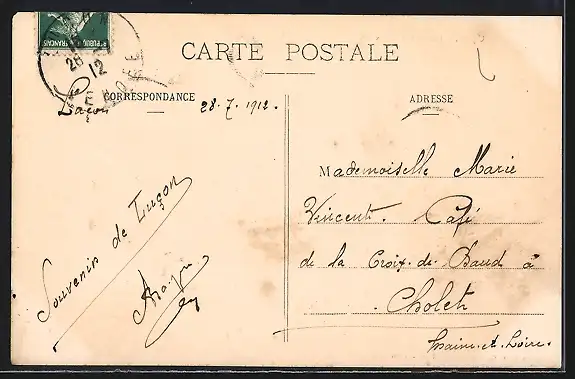 RÉPUBLIQUE FRANÇAISE
28 - 12
CARTE POSTALE
CORRESPONDANCE
ADRESSE
Luçon
28.7.1912.
Mademoiselle Marie
Vincent. Café
de la Croix-de-Baud à
Cholet
Maine-et-Loire.
Souvenir de Luçon